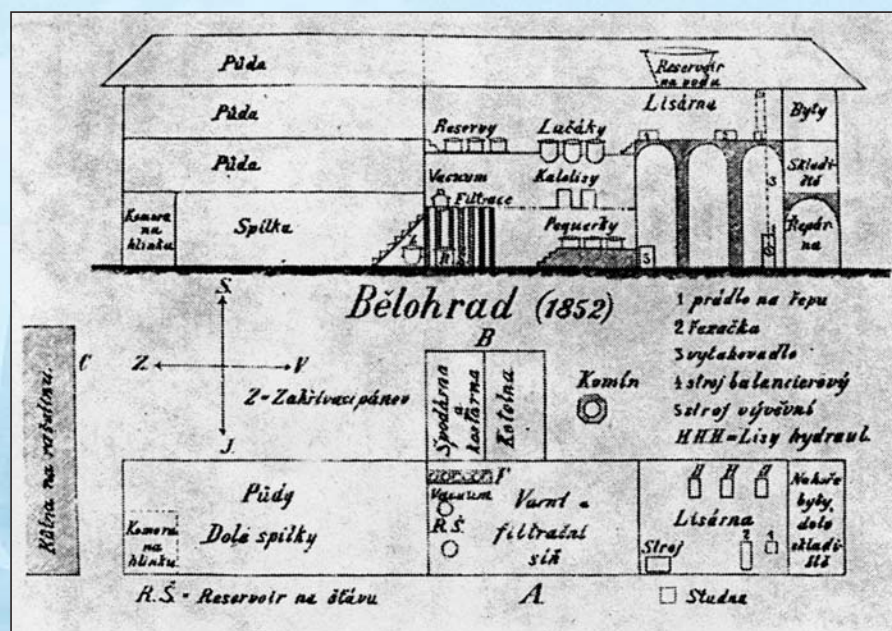 Půda
Reservoir
na vodu
Půda
Lisárna
Byty
Reservy
Lučáky
1
2
Půda
Vacuum
Kalolisy
Skladi-
ště
3
Filtrace
Komora
na
hlinku
Spilka
Pequerky
Řepár-
na
5
S.
Bělohrad (1852)
1 prádlo na řepu
2 řezačka
3 vytahovadlo
4 stroj balancierový
5 stroj vývěvní
H H H = Lisy hydraul.
Z. V
J.
Z = Zahřívací pánev
C
B
Spodárna
a
kostárna
Kotelna
Komín
Kůlna na
Půdy
Dolé spilky
Komora
na
hlinku
F
Vacuum
R.Š.
Varní a
filtrační
síň
H H H
Lisárna
Stroj
2 1
Nahoře
byty,
dole
skladi-
ště
R.Š. = Reservoir na šťávu
A.
Studna